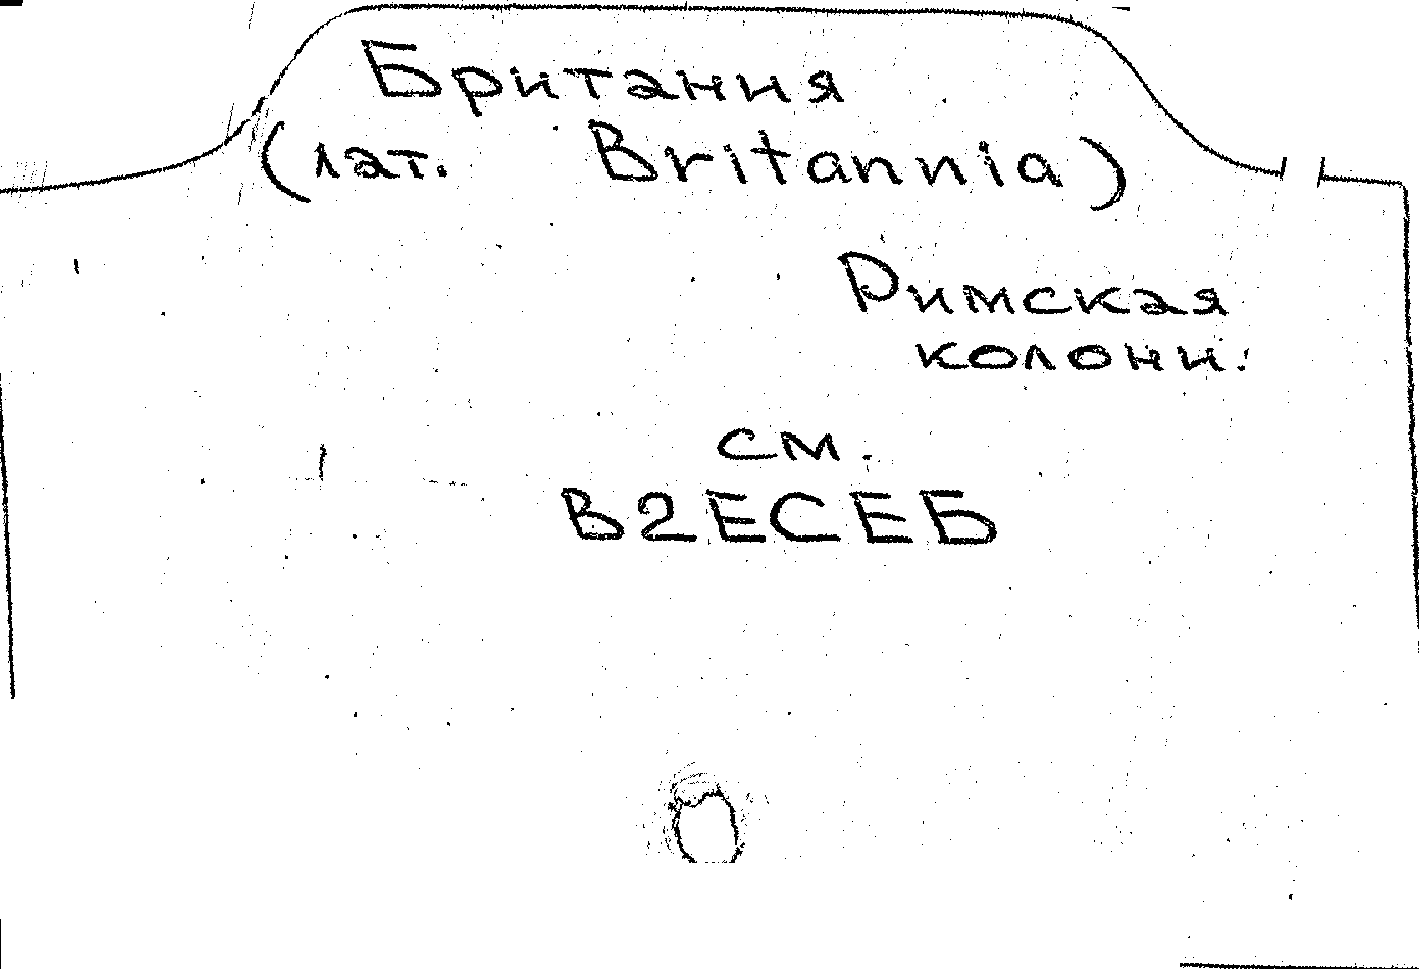 Британия
(лат. Britannia)
Римская
колони.
см.
В2ЕСЕБ